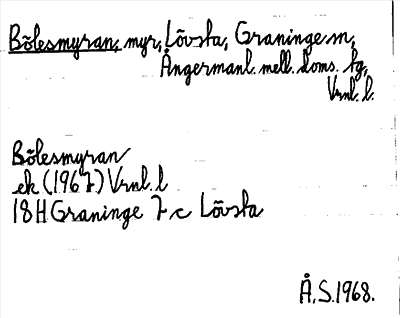 Bölesmyran, myr, Lövsta, Graninge sn,
Ångermanl. mell. doms. tg,
Vrnl. l.
Bölesmyran
ek (1967) Vrnl. l
18H Graninge 7 c Lövsta
Å. S. 1968.